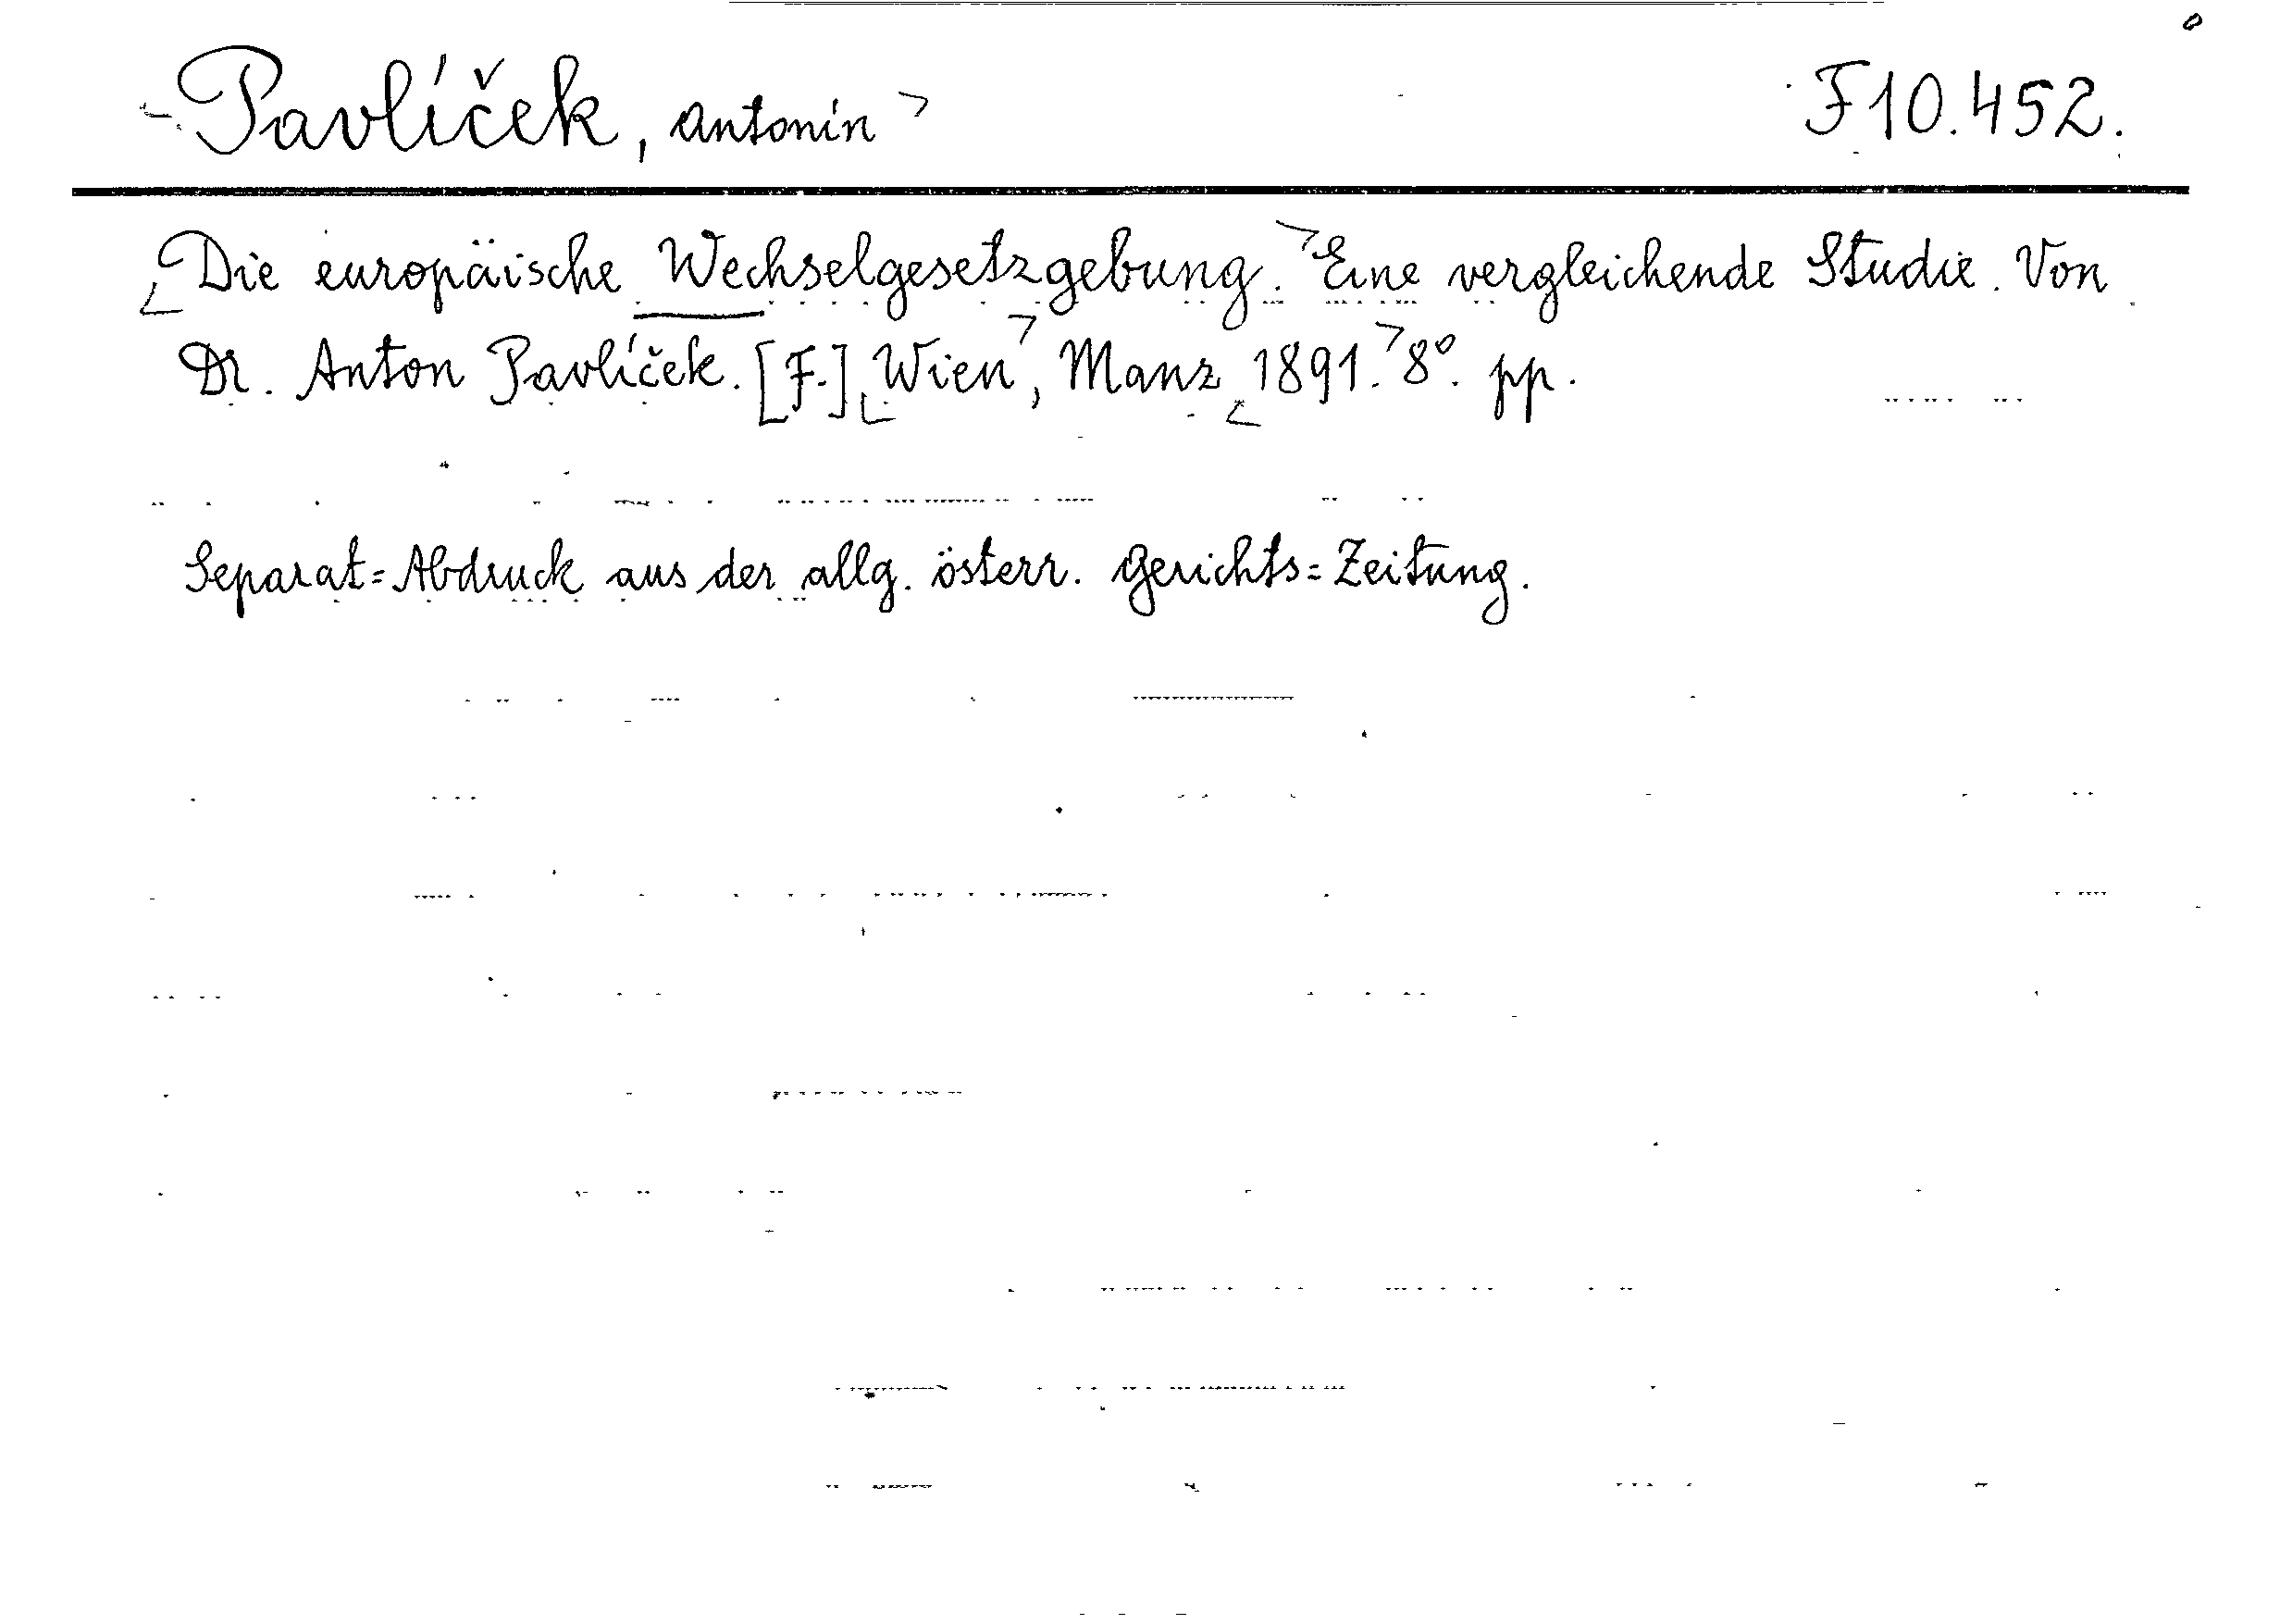 Pavlíček, Antonín F 10.452.
Die europäische Wechselgesetzgebung. Eine vergleichende Studie. Von
Dr. Anton Pavlíček. [F.] Wien, Manz 1891. 8°. pp.
Separat=Abdruck aus der allg. österr. Gerichts=Zeitung.